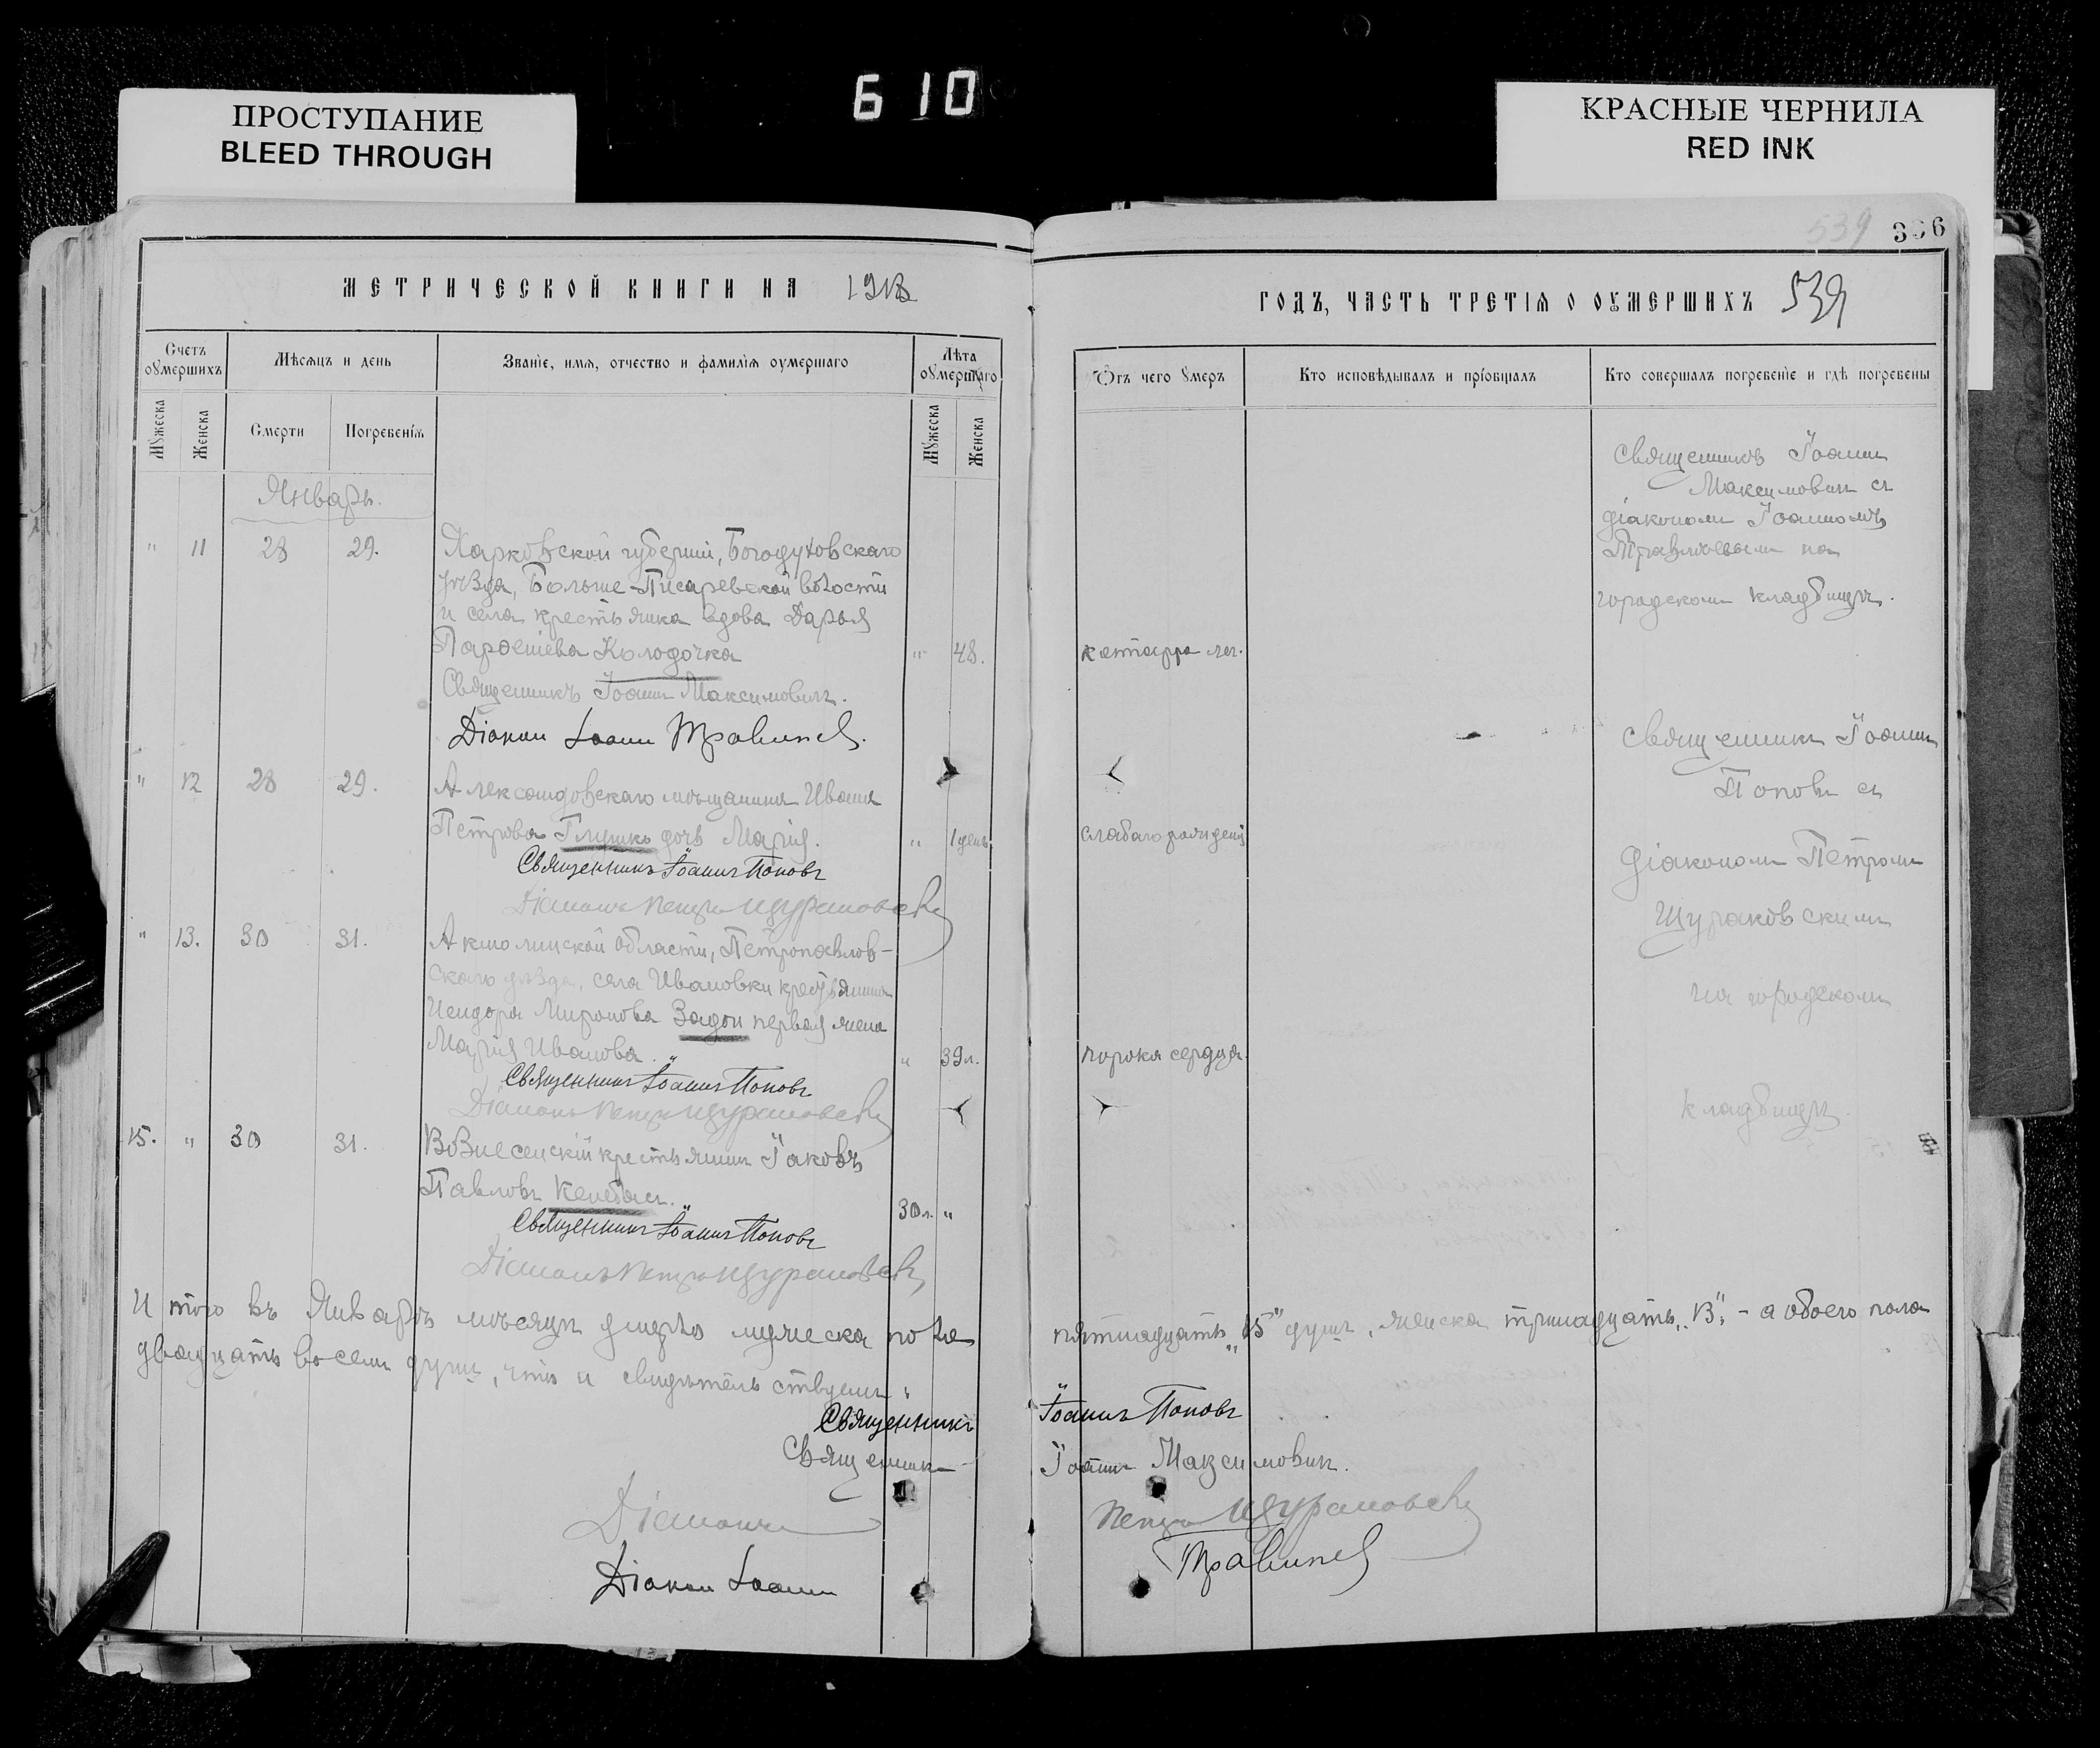 6 10
ПРОСТУПАНИЕ
BLEED THROUGH
КРАСНЫЕ ЧЕРНИЛА
RED INK
539 306
МЕТРИЧЕСКОЙ КНИГИ НА 1918
ГОДЪ, ЧАСТЬ ТРЕТІЯ О ОУМЕРШИХЪ 539
Счетъ оумершихъ
Мѣсяцъ и день
Званіе, имя, отчество и фамилія оумершаго
Лѣта оумершаго
Отъ чего умеръ
Кто исповѣдывалъ и пріобщалъ
Кто совершалъ погребеніе и гдѣ погребены
Мужеска
Женска
Смерти
Погребенія
Мужеска
Женска
Январь.
" 11 28 29. Харковской губерніи, Богодуховскаго
уѣзда, Больше-Писаревской волости
и села крестьянка вдова Дарья
Парѳеніева Колодочка " 48. катарра лег.
Священникъ Іоаннъ Максимовичъ.
Діаконъ Іоаннъ
Священникъ Іоаннъ
Максимовичъ съ
діакономъ Іоанномъ
на
городскомъ кладбищѣ.
" 12 28 29. Александровскаго мѣщанина Ивана
Петрова Глушко дочь Марія. " 1 день слабаго рожденія
Священникъ Іоаннъ Поповъ
Діаконъ Петръ Щураковскій
" 13. 30 31. Акмолинской области, Петропавлов-
скаго уѣзда, села Ивановки крестьянина
Исидора Миронова Задои первая жена
Марія Иванова. " 39 л. порока сердца.
Священникъ Іоаннъ Поповъ
Діаконъ Петръ Щураковскій
15. " 30 31. Вознесенскій крестьянинъ Іаковъ
Павловъ 30 л. "
Священникъ Іоаннъ Поповъ
Діаконъ Петръ Щураковскій
Священникъ Іоаннъ
Поповъ съ
діакономъ Петромъ
Щураковскимъ
на городскомъ
кладбищѣ.
Итого въ Январѣ мѣсяцѣ умерло мужеска пола пятнадцать "15" душъ, женска тринадцать "13", - а обоего пола
двадцать восемь душъ, что и свидѣтельствуемъ:
Священникъ Іоаннъ Поповъ
Священникъ Іоаннъ Максимовичъ.
Діаконъ Петръ Щураковскій
Діаконъ Іоаннъ